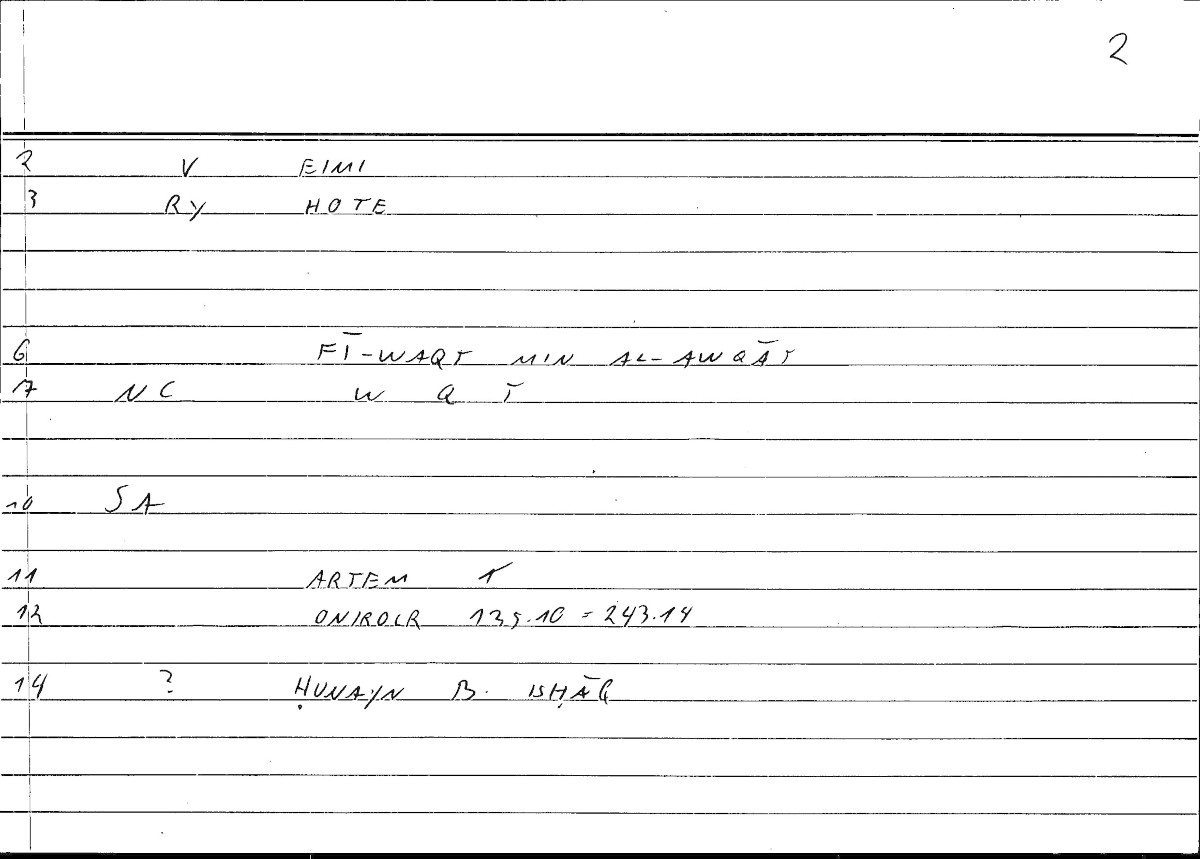 2
2 V EIMI
3 RY HOTE
6 FĪ-WAQT MIN AL-AWQĀT
7 NC W Q T
10 SA
11 ARTEM 1
12 ONIROCR 135.10 = 243.14
14 ? ḤUNAYN B. ISḤĀQ